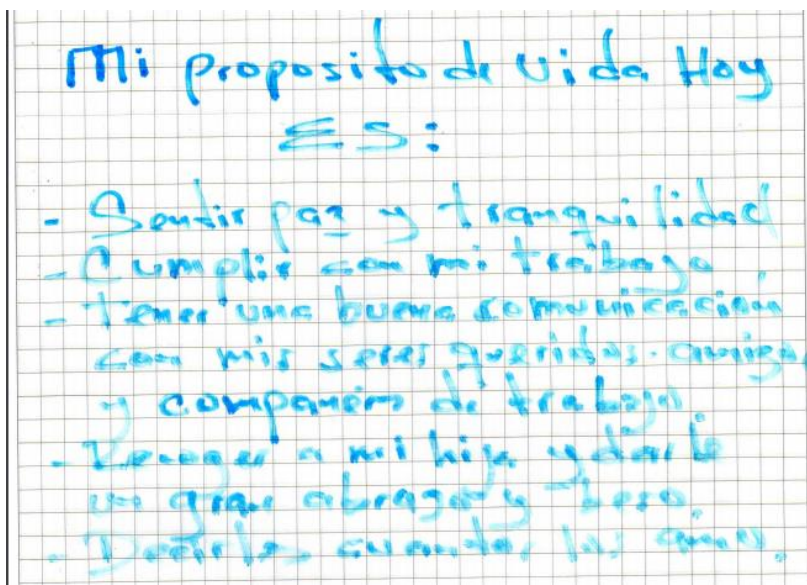 Mi proposito de vida Hoy
ES:
- Sentir paz y tranquilidad
- Cumplir con mi trabajo
- Tener una buena comunicación
con mis seres queridos. amigos
y compañeros de trabajo.
- Recoger a mi hija y darle
un gran abrazo y beso.
- Decirles cuanto los amo.